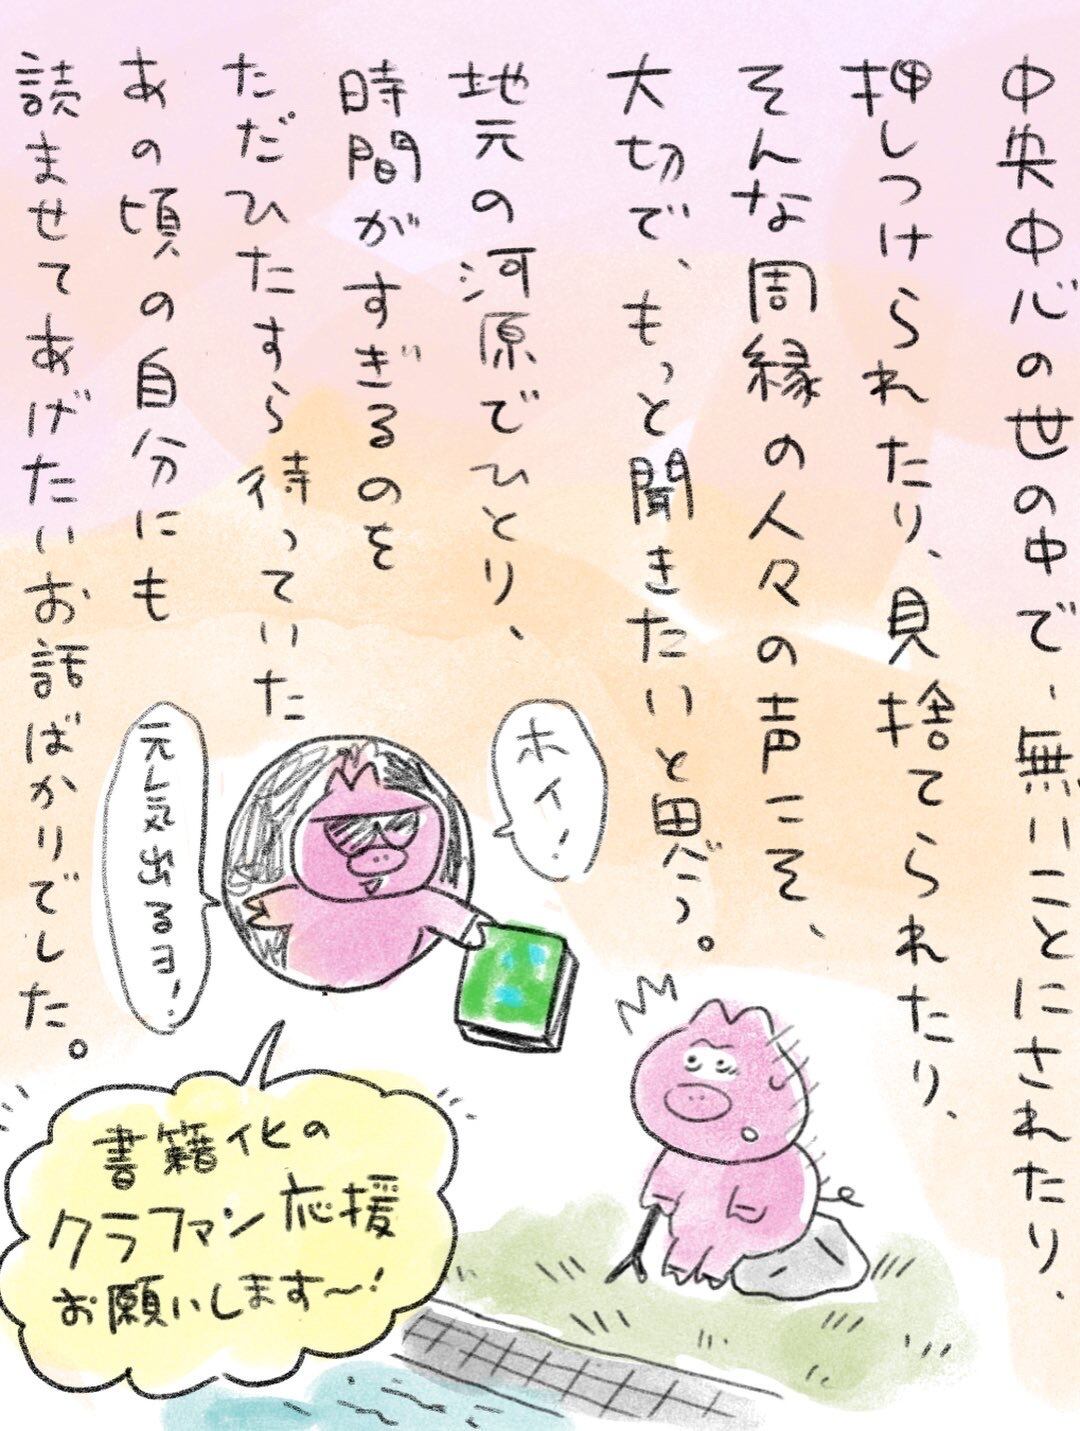 中央中心の世の中で、無いことにされたり、
押しつけられたり、見捨てられたり、
そんな周縁の人々の声こそ、
大切で、もっと聞きたいと思う。
地元の河原でひとり、
時間がすぎるのを
ただひたすら待っていた
あの頃の自分にも
読ませてあげたいお話ばかりでした。
ホイ!
元気出るヨ!
書籍化の
クラファン応援
お願いします〜!